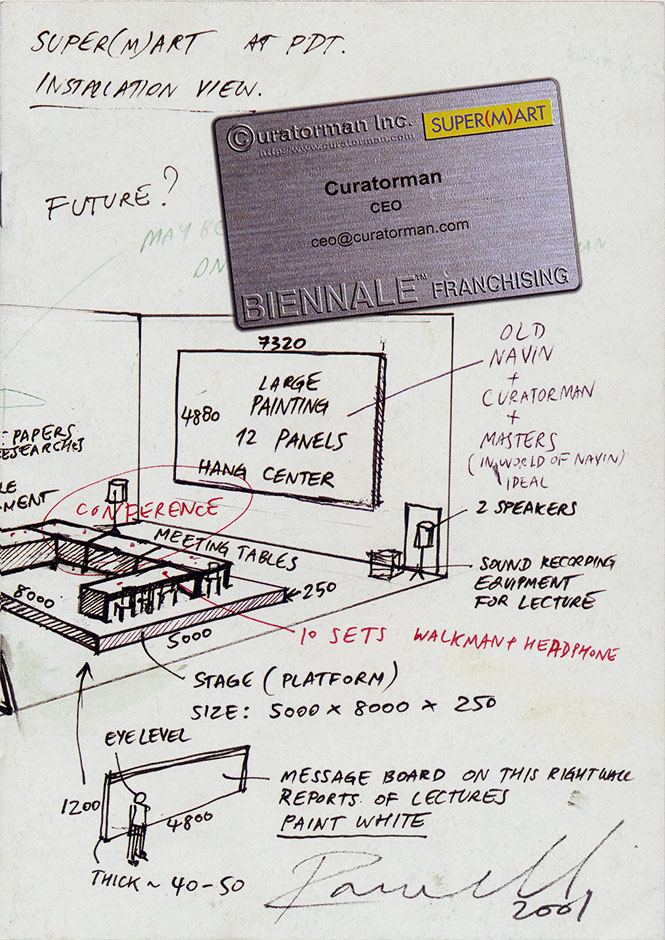 SUPER(M)ART AT PDT.
INSTALLATION VIEW.
©uratorman Inc.
http://www.curatorman.com
SUPER(M)ART
Curatorman
CEO
ceo@curatorman.com
BIENNALE™ FRANCHISING
FUTURE?
MAY BE
ON
7320
4880
LARGE
PAINTING
12 PANELS
HANG CENTER
OLD
NAVIN
+
CURATORMAN
+
MASTERS
(IN WORLD OF NAVIN)
IDEAL
PAPERS
CONFERENCE
MEETING TABLES
2 SPEAKERS
SOUND RECORDING
EQUIPMENT
FOR LECTURE
8000
5000
250
10 SETS WALKMAN + HEADPHONE
STAGE (PLATFORM)
SIZE: 5000 × 8000 × 250
EYE LEVEL
1200
4800
THICK ~ 40-50
MESSAGE BOARD ON THIS RIGHT WALL
REPORTS OF LECTURES
PAINT WHITE
2001